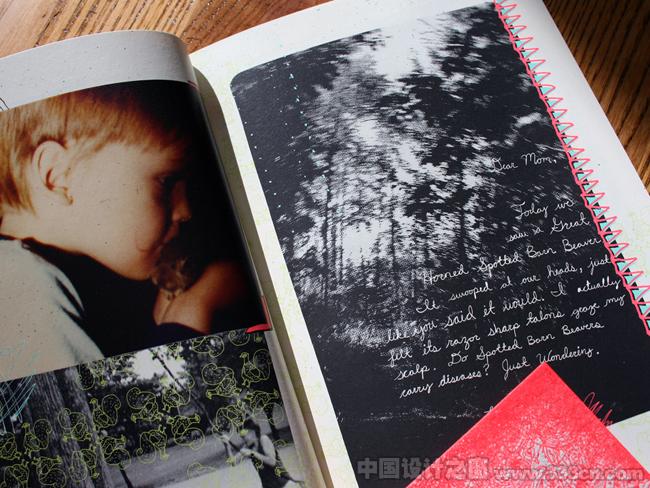 Dear Mom,
Today we
saw a Great
Horned Spotted Barn Beaver
It swooped at our heads, just
like you said it would. I actually
felt its razor sharp talons graze my
scalp. Do Spotted Barn Beavers
carry diseases? Just Wondering.
中国设计之窗 www.333cn.com